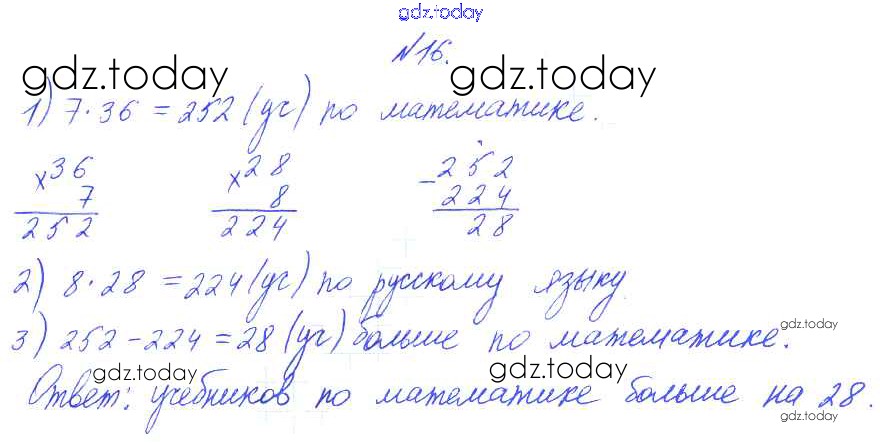 gdz.today
№16.
gdz.today gdz.today
1) 7·36 = 252 (уч) по математике.
×36 ×28 -252
7 8 224
252 224 28
2) 8·28 = 224 (уч) по русскому языку.
3) 252-224 = 28 (уч) больше по математике.
gdz.today
gdz.today gdz.today
Ответ: учебников по математике больше на 28.
gdz.today